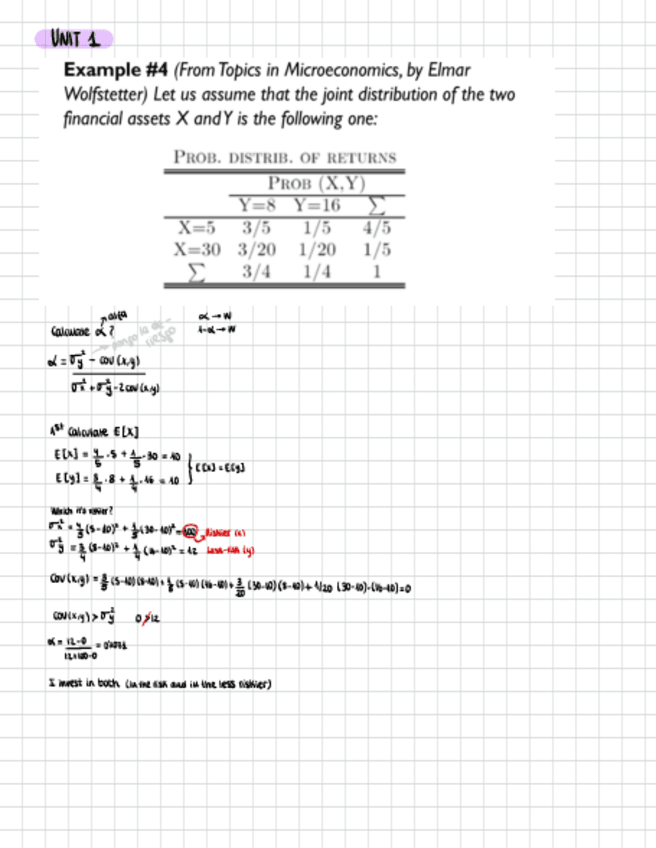 UNIT 1
Example #4 (From Topics in Microeconomics, by Elmar
Wolfstetter) Let us assume that the joint distribution of the two
financial assets X and Y is the following one:
PROB. DISTRIB. OF RETURNS
PROB (X,Y)
Y=8 Y=16 Σ
X=5 3/5 1/5 4/5
X=30 3/20 1/20 1/5
Σ 3/4 1/4 1
Calculate α?
α → W
1-α → W
riesgo
α = σy² - cov(x,y)
σx² + σy² - 2cov(x,y)
1st Calculate E[X]
E[X] = 4/5 · 5 + 1/5 · 30 = 10
E[Y] = 3/4 · 8 + 1/4 · 16 = 10
E[X] = E[Y]
Which it's riskier?
σx² = 4/5 (5-10)² + 1/5 (30-10)² = 100 Riskier (x)
σy² = 3/4 (8-10)² + 1/4 (16-10)² = 12 Less-risk (y)
Cov(x,y) = 3/5 (5-10)(8-10) + 1/5 (5-10)(16-10) + 3/20 (30-10)(8-10) + 1/20 (30-10)·(16-10) = 0
Cov(x,y) > σy² 0 > 12
α = 12-0
12+100-0
I invest in both (in the risk and in the less riskier)